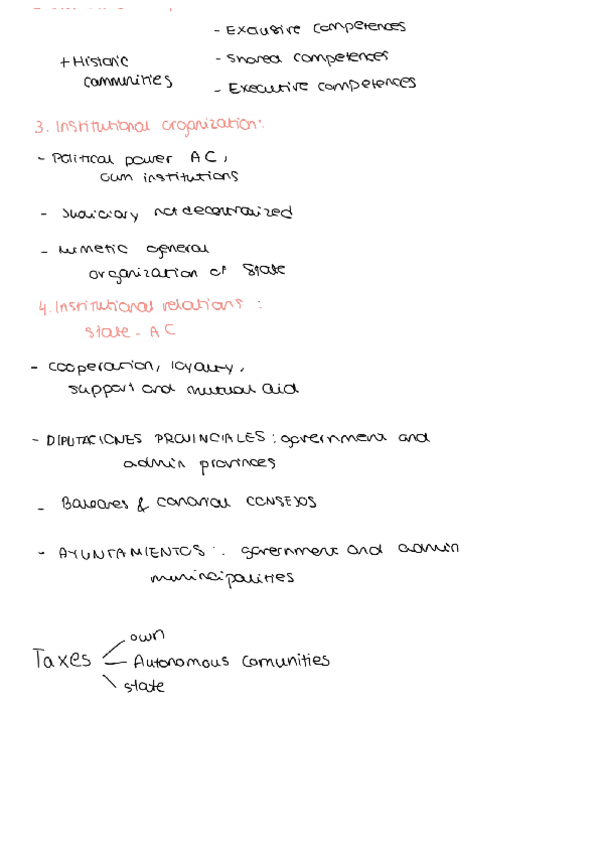 - Exclusive competences
+ Historic
communities
- Shared competences
- Executive competences
3. Institutional organization:
- Political power AC,
own institutions
- Judiciary not decentralized
- general
organization of State
4. Institutional relations :
State - AC
- cooperation, loyalty,
support and mutual aid
- DIPUTACIONES PROVINCIALES : government and
admin provinces
- Baleares & Canarias CONSEJOS
- AYUNTAMIENTOS : government and admin
municipalities
Taxes
own
Autonomous comunities
state